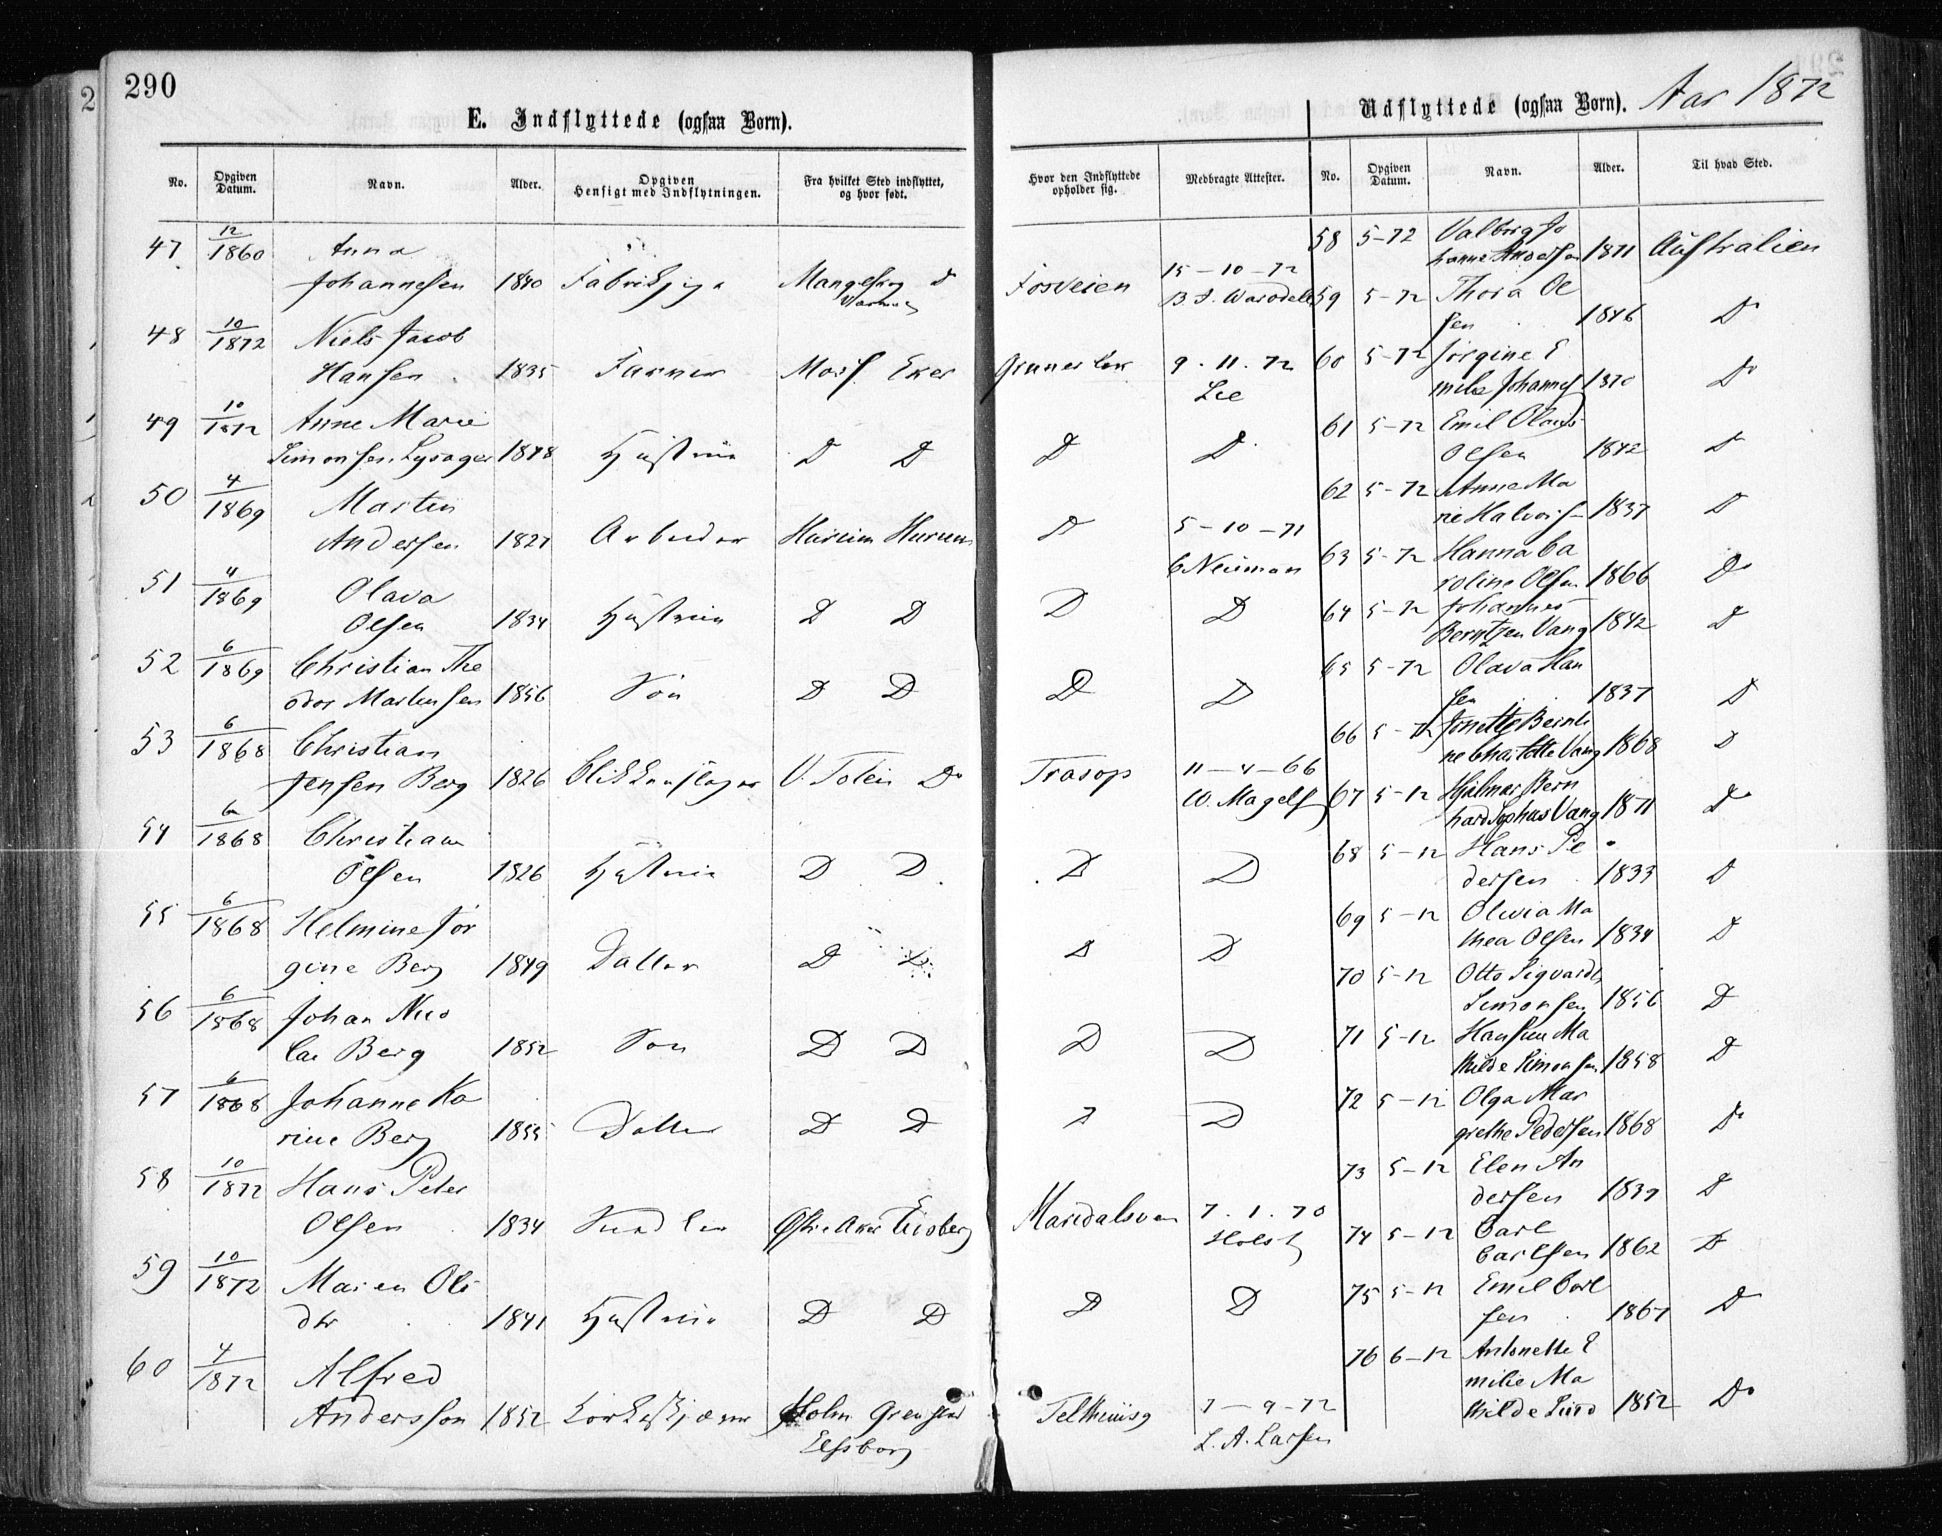 290
E. Indflyttede (ogsaa Børn).
No.
Opgiven Datum.
Navn.
Alder.
Opgiven Hensigt med Indflytningen.
Fra hvilket Sted indflyttet, og hvor født.
47 12/1860 Anna
Johannesen 1840
48 10/1872 Niels Jacob
Hansen 1835 Farver Eker
49 10/1872 Anne Marie
Simonsen Lysager 1848 Hustru D D
50 4/1869 Martin
Andersen 1827 Arbeider Hurum Hurum
51 4/1869 Olava
Olsen 1834 Hustru D D
52 6/1869 Christian The
odor Martinsen 1856 Søn D D
53 6/1868 Christian
Jensen Berg 1826 Blikkenslager V. Toten Do
54 6/1868 Christiane
Olsen 1826 Hustru D D
55 6/1868 Helmine Jør
gine Berg 1849 Datter D D
56 6/1868 Johan Nico
lai Berg 1852 Søn D D
57 6/1868 Johanne Ka
rine Berg 1855 Datter D D
58 10/1872 Hans Peter
Olsen 1834 Østre Aker Eidsberg
59 10/1872 Maren Ols
dtr 1841 Hustru D D
60 4/1872 Alfred
Andersson 1852 Holm
Elfsborg
Udflyttede (ogsaa Børn). Aar 1872
Hvor den Indflyttede opholder sig.
Medbragte Attester.
No.
Opgiven Datum.
Navn.
Alder.
Til hvad Sted.
15-10-72
Fosveien
9.11.72
Lee
D D
D 5-10-71
C Neuman
D D
D D
Trasop 11-4-66
W. Magelss
D D
D D
D D
D D
Maridalsvn 7.1.70
Holst
D D
7-9-72
L. A. Larsen
58 5-72 Valborg Jo
hanne Andersen 1871 Australien
59 5-72 Thora Ol
sen 1846 Do
60 5-72 Jørgine E
milie Johannes 1870 Do
61 5-72 Emil Olaus
Olsen 1842 D
62 5-72 Anne Ma
rie Halvors 1837 D
63 5-72 Hanna Ca
roline Olsen 1866 Do
64 5-72 Johannes
Berntzen Vang 1842 D
65 5-72 Olava Han
sen 1837 D
66 5-72 Jonette Bernti
ne Charlotte Vang 1868 D
67 5-72 Hjalmar Bern
hard Sophus Vang 1871 Do
68 5-72 Hans Pe
dersen 1833 D
69 5-72 Olivia Ma
thea Olsen 1834 D
70 5-72 Otto Sigvardt
Simonsen 1856 D
71 5-72 Hansine Ma
thilde Simonsen 1858 D
72 5-72 Olga Mar
grethe Pedersen 1868 Do
73 5-72 Elen An
dersen 1839 D
74 5-72 Carl
Carlsen 1862 D
75 5-72 Emil Carl
sen 1867 D
76 6-72 Antonette E
milie Ma
thilde Lund 1852 Do